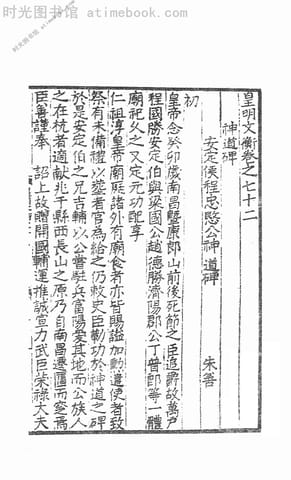 时光图书馆 atimebook.com
皇明文衡卷之七十二
神道碑
安定侯程忠愍公神道碑
朱善
初
皇帝念癸卯歲南昌暨康郎山前後死節之臣追爵故萬戶
程國勝安定伯與梁國公趙德勝濟陽郡公丁普郎等一體
廟祀久之又定元功配享
仁祖淳皇帝廟庭諸外有廟食者亦皆賜謚加勳遣使者致
祭有未備禮以塟者官為給之仍敕史臣勒功於神道之碑
於是安定伯之兄吉輔以公嘗駐兵富陽愛其地而公族人
之在杭者適獻兆于縣西長山之原乃自南昌遷匶而窆焉
臣善謹奉 詔上故贈開國輔運推誠宣力武臣榮祿大夫
时光图书馆 atimebook.com